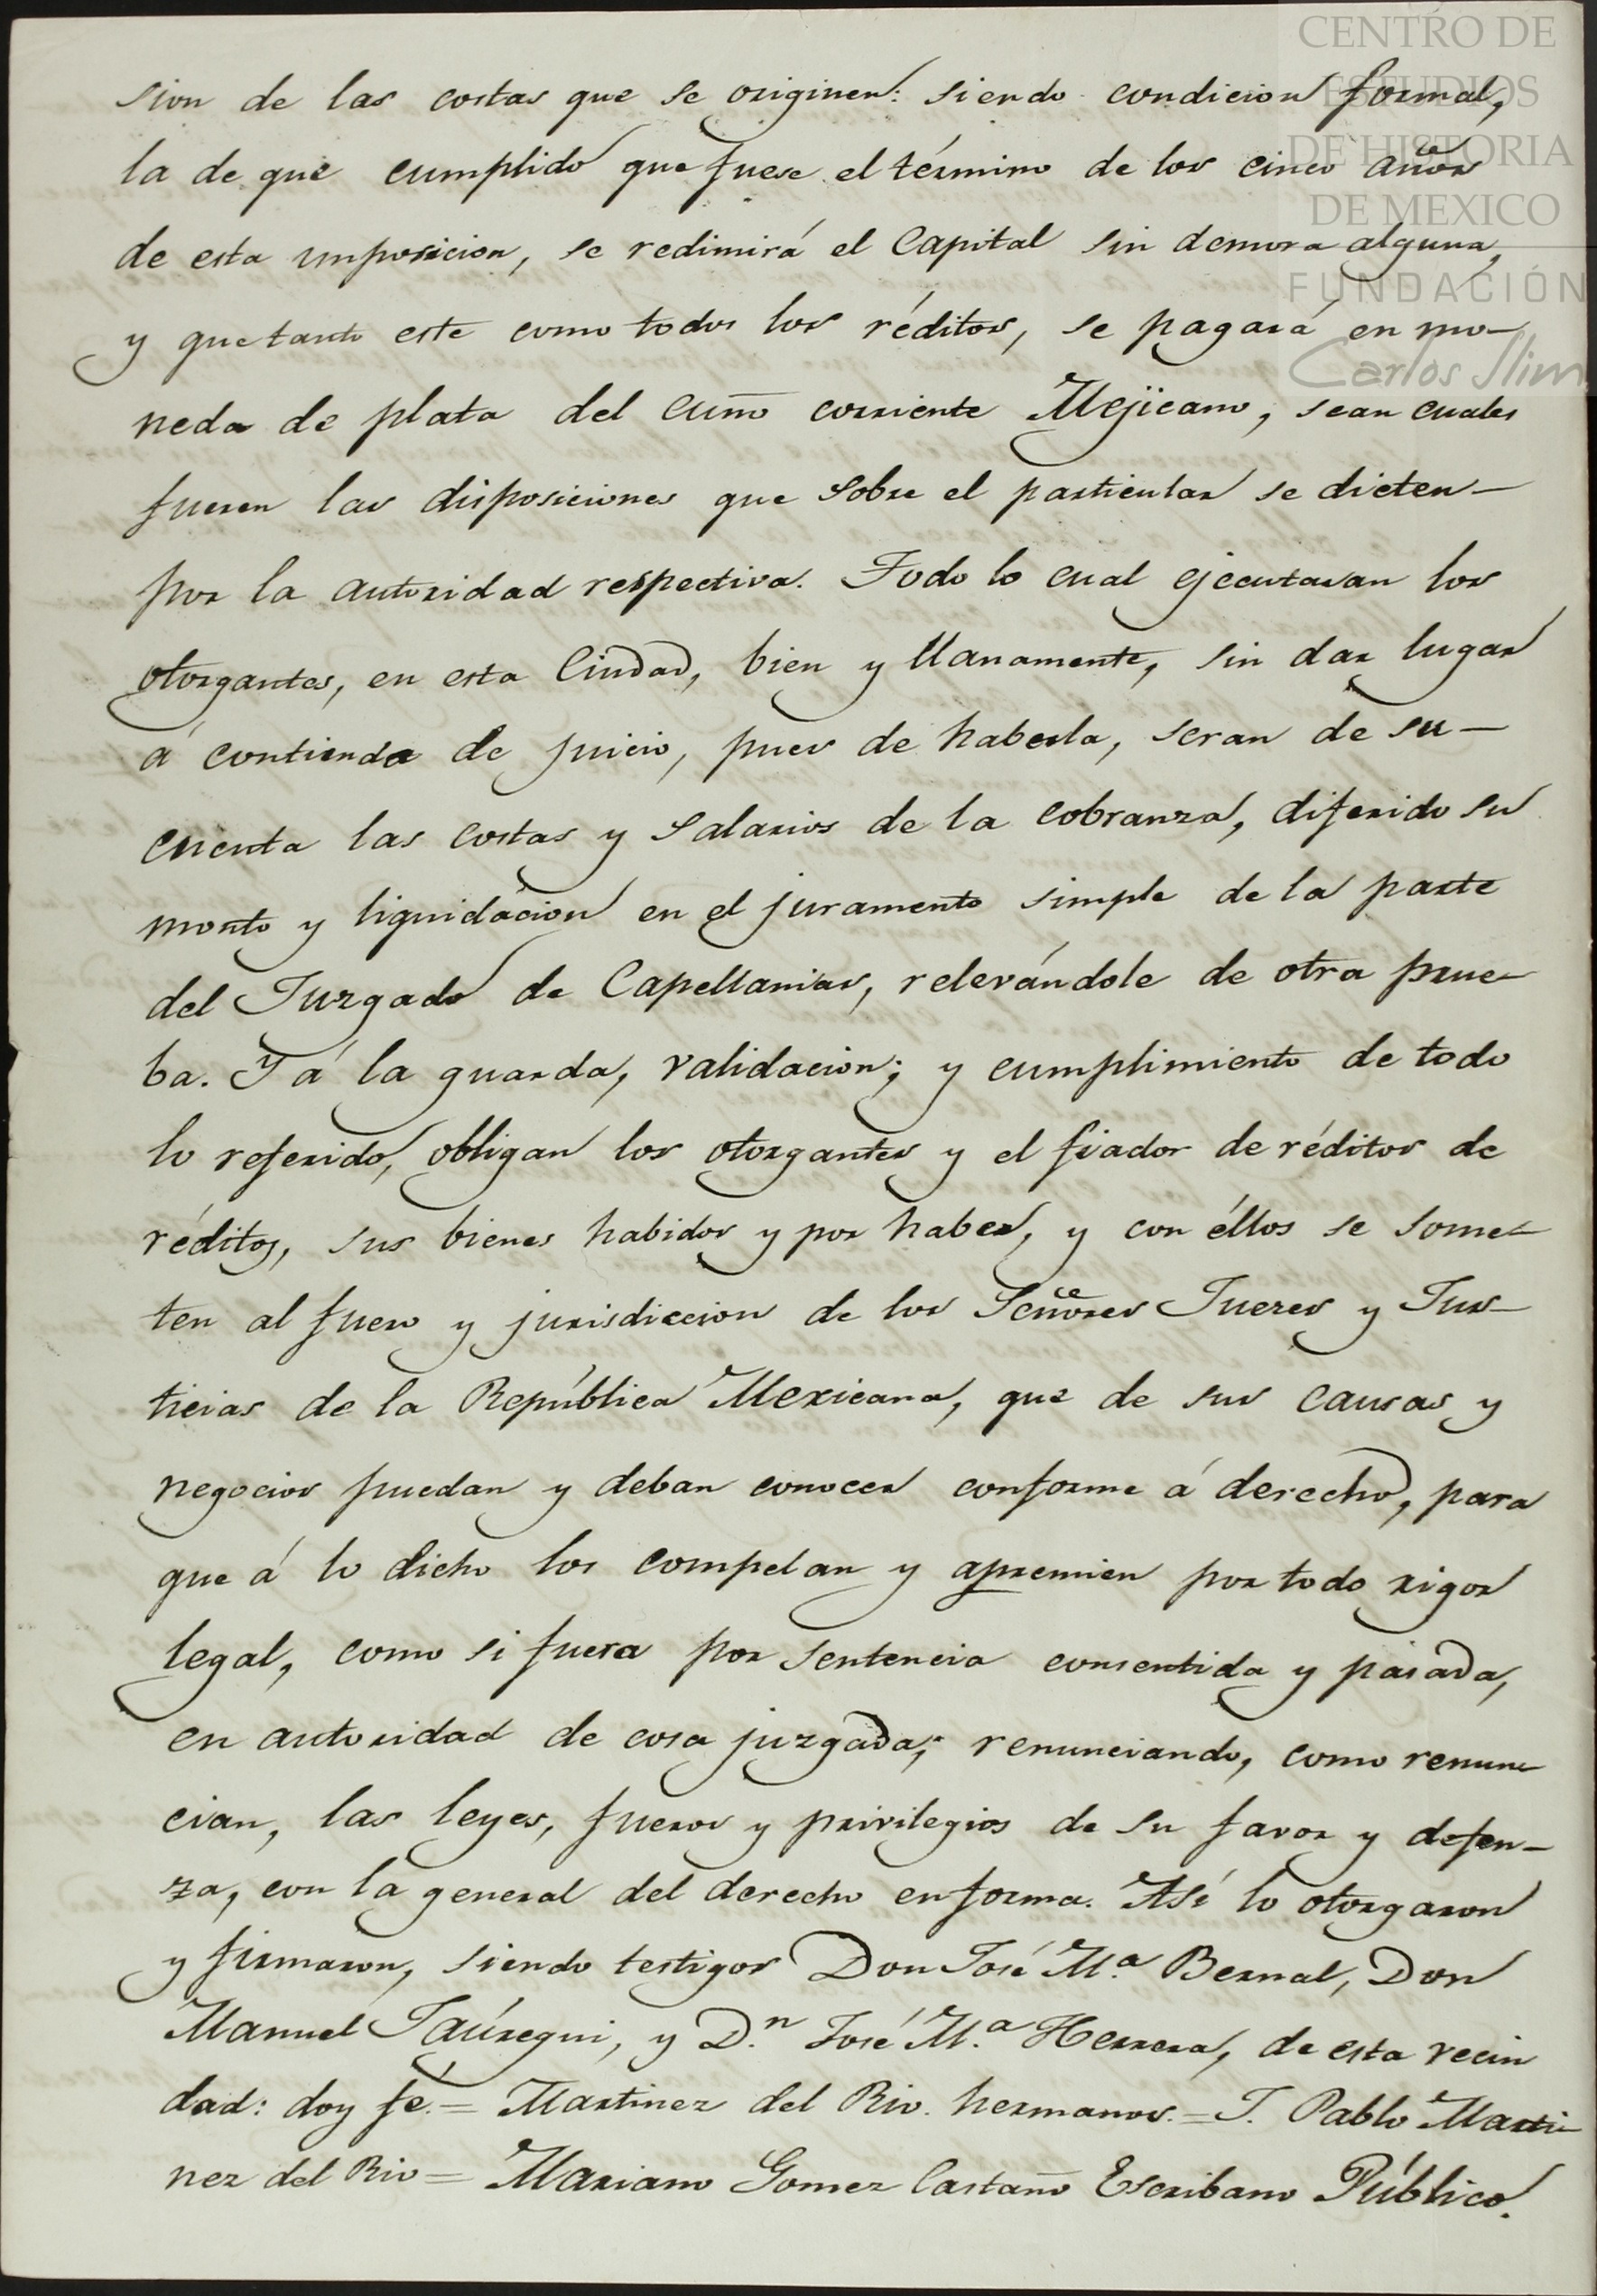 CENTRO DE
ESTUDIOS
DE HISTORIA
DE MEXICO
FUNDACIÓN
Carlos Slim
sion de las costas que se originen: siendo condicion formal,
la de que cumplido que fuese el término de los cinco años
de esta imposicion, se redimirá el Capital sin demora alguna,
y que tanto este como todos los réditos, se pagará en mo-
neda de plata del cuño corriente Mejicano, sean cuales
fueren las disposiciones que sobre el particular se dicten-
por la autoridad respectiva. Todo lo cual ejecutaran los
otorgantes, en esta Ciudad, bien y llanamente, sin dar lugar
á contienda de juicio, pues de haberla, seran de su-
cuenta las costas y salarios de la cobranza, diferido su
monto y liquidacion en el juramento simple de la parte
del Juzgado de Capellanias, relevándole de otra prue-
ba. Y á la guarda, validacion; y cumplimiento de todo
lo referido, obligan los otorgantes y el fiador de réditos de
réditos, sus bienes habidos y por haber, y con éllos se some-
ten al fuero y jurisdiccion de los Señores Jueces y Jus-
ticias de la República Mexicana, que de sus causas y
negocios puedan y deban conocer conforme á derecho, para
que á lo dicho los compelan y apremien por todo rigor
legal, como si fuera por sentencia consentida y pasada,
en autoridad de cosa juzgada; renunciando, como renun-
cian, las leyes, fueros y privilegios de su favor y defen-
za, con la general del derecho en forma. Asi lo otorgaron
y firmaron, siendo testigos Don José M.ª Bernal, Don
Manuel Jaúregui, y D.n José M.ª Herrera, de esta vecin
dad: doy fe.= Martinez del Rio hermanos.= J. Pablo Marti-
nez del Rio= Mariano Gomez Castaño Escribano Público.